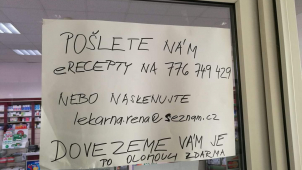 POŠLETE NÁM
eRECEPTY NA 776 749 429
NEBO NASKENUJTE
lekarna.rena@seznam.cz
DOVEZEME VÁM JE
TO OLOMOUCI ZDARMA